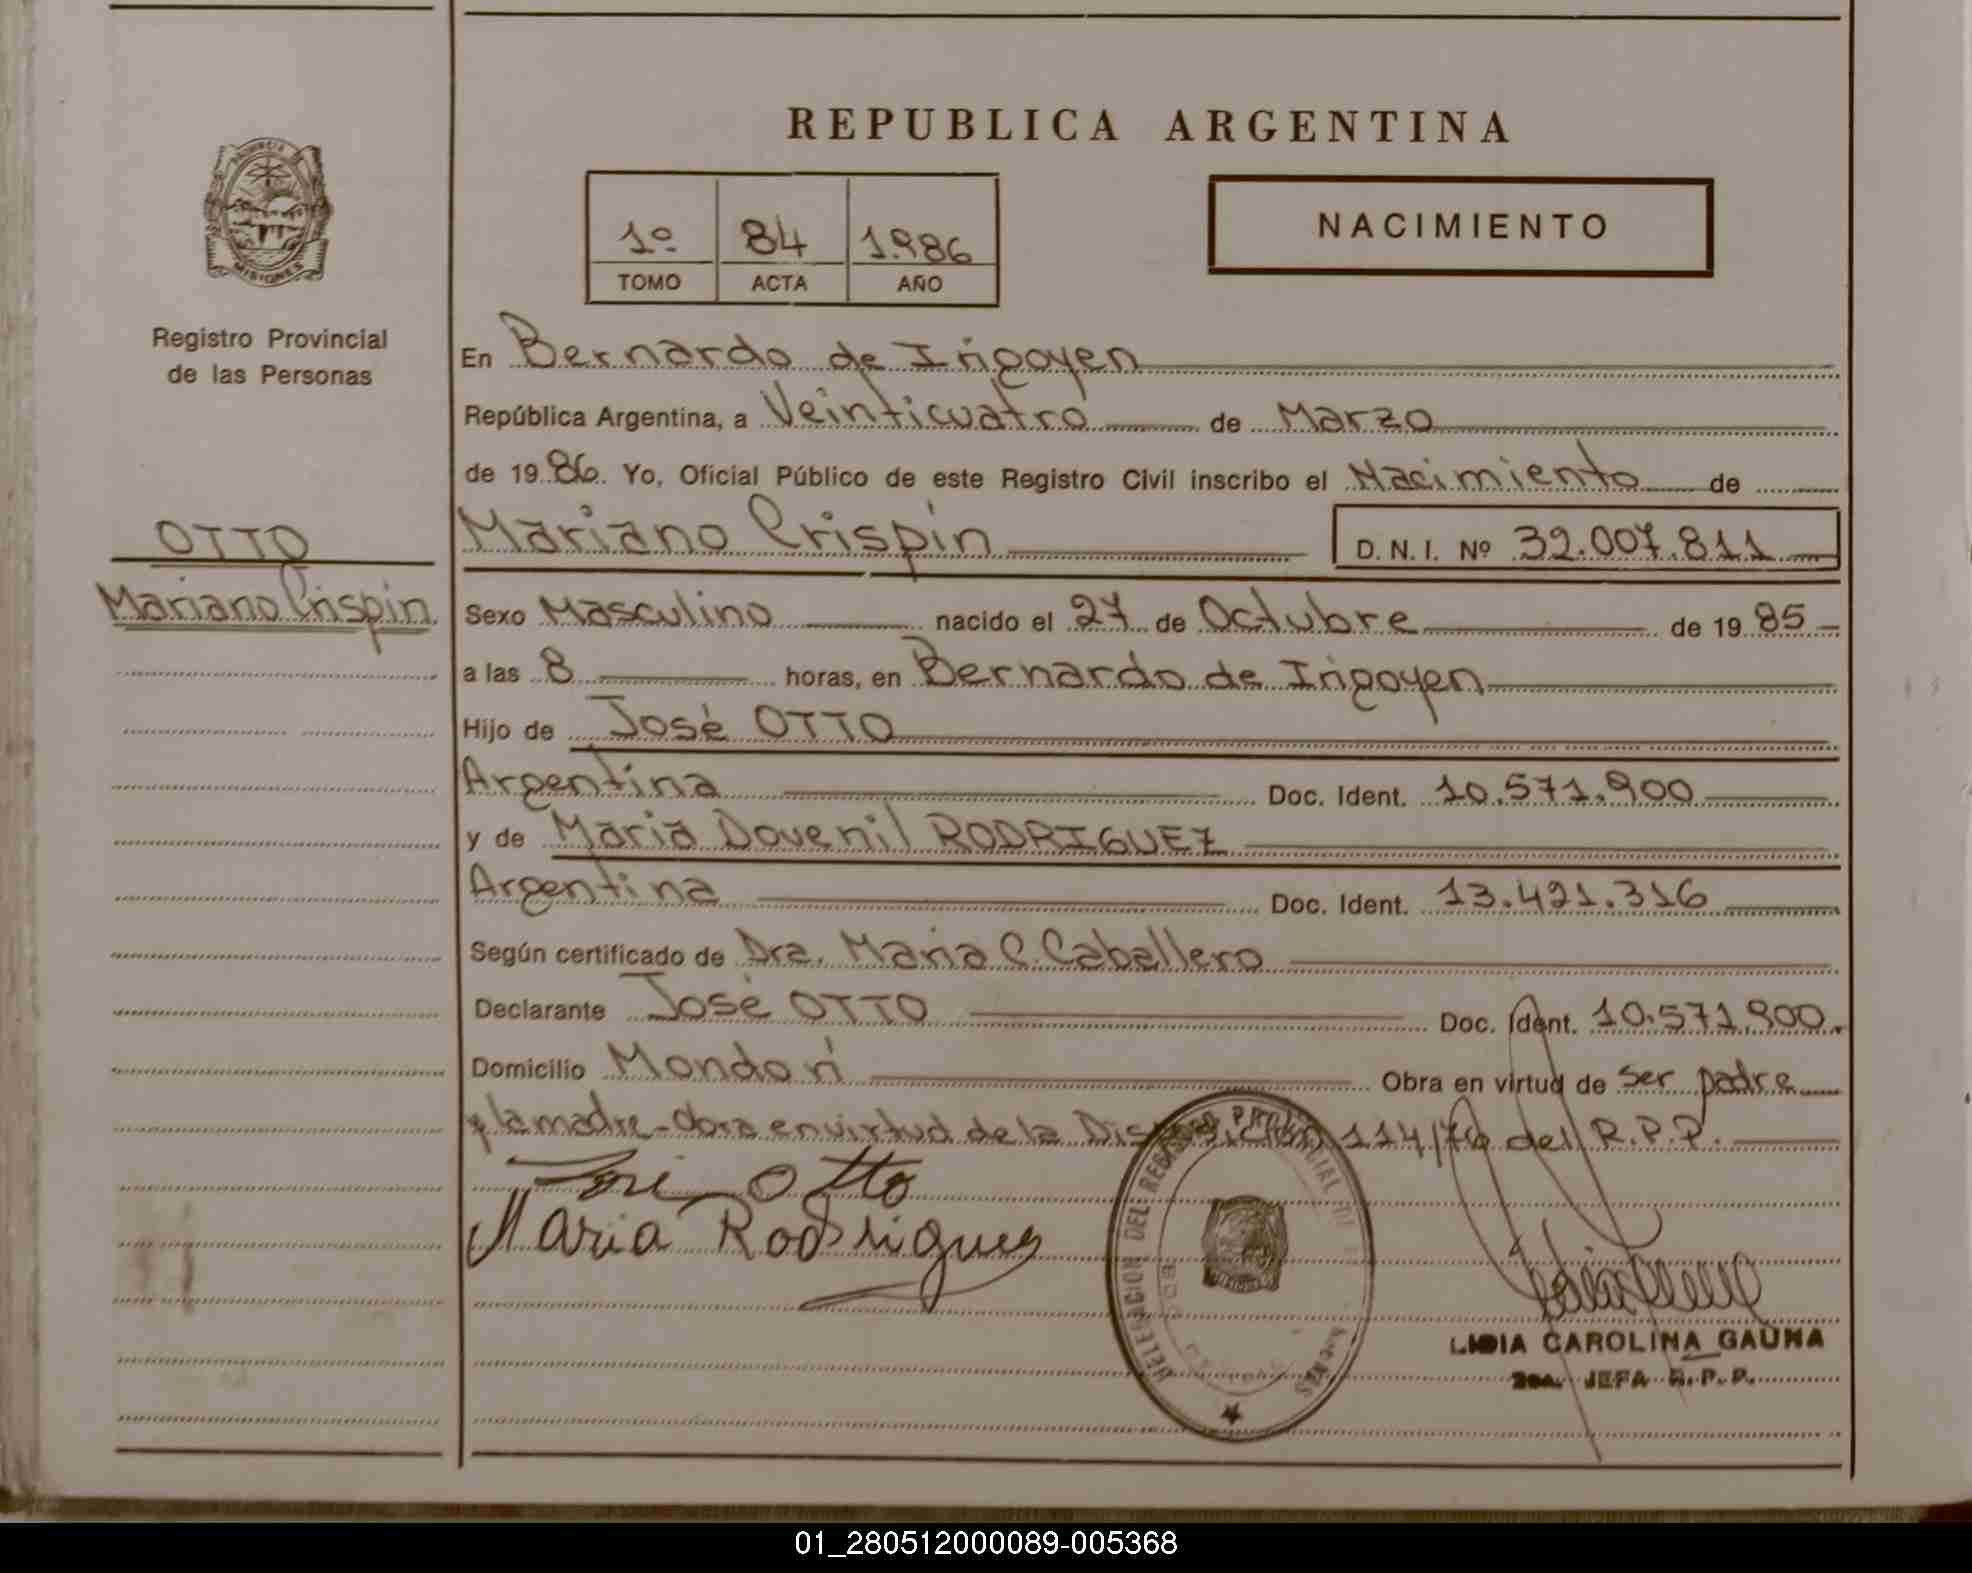 REPUBLICA ARGENTINA
PROVINCIA DE
MISIONES
Registro Provincial
de las Personas
OTTO
Mariano Crispín
1º 84 1.986
TOMO ACTA AÑO
NACIMIENTO
En Bernardo de Irigoyen
República Argentina, a Veinticuatro de Marzo
de 19 86. Yo, Oficial Público de este Registro Civil inscribo el Nacimiento de
Mariano Crispín D. N. I. Nº 32.007.811
Sexo Masculino nacido el 27 de Octubre de 19 85
a las 8 horas, en Bernardo de Irigoyen
Hijo de José OTTO
Argentina Doc. Ident. 10.571.900
y de María Dovenil RODRIGUEZ
Argentina Doc. Ident. 13.421.316
Según certificado de Dra. María C. Caballero
Declarante José OTTO Doc. Ident. 10.571.900.
Domicilio Mondorí Obra en virtud de ser padre
y la madre-obra en virtud de la Disposición 114/76 del R.P.P.
José Otto
Maria Rodrigues
DELEGACION DEL REGISTRO PROVINCIAL
LIDIA CAROLINA GAUNA
2da. JEFA R.P.P.
01_280512000089-005368